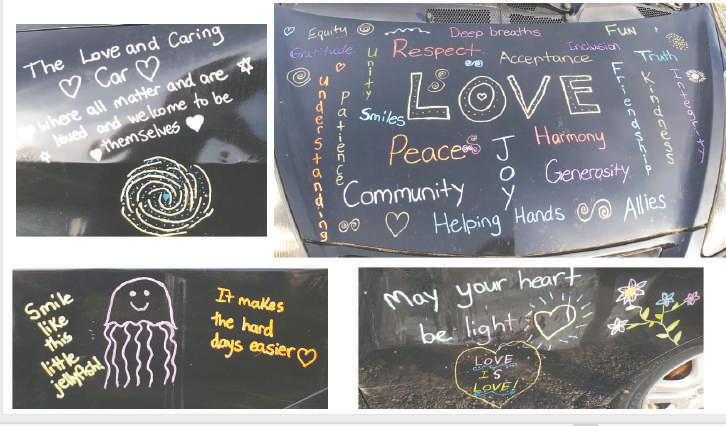 The Love and Caring
Car
Where all matter and are
loved and welcome to be
themselves
Equity
Deep breaths
FUN
Gratitude
Unity
Respect
Acceptance
Inclusion
Truth
Understanding
Patience
Smiles
LOVE
Friendship
Kindness
Integrity
Peace
JOY
Harmony
Generosity
Community
Helping Hands
Allies
Smile
like
this
little
jellyfish!
It makes
the hard
days easier
May your heart
be light
LOVE
IS
LOVE!